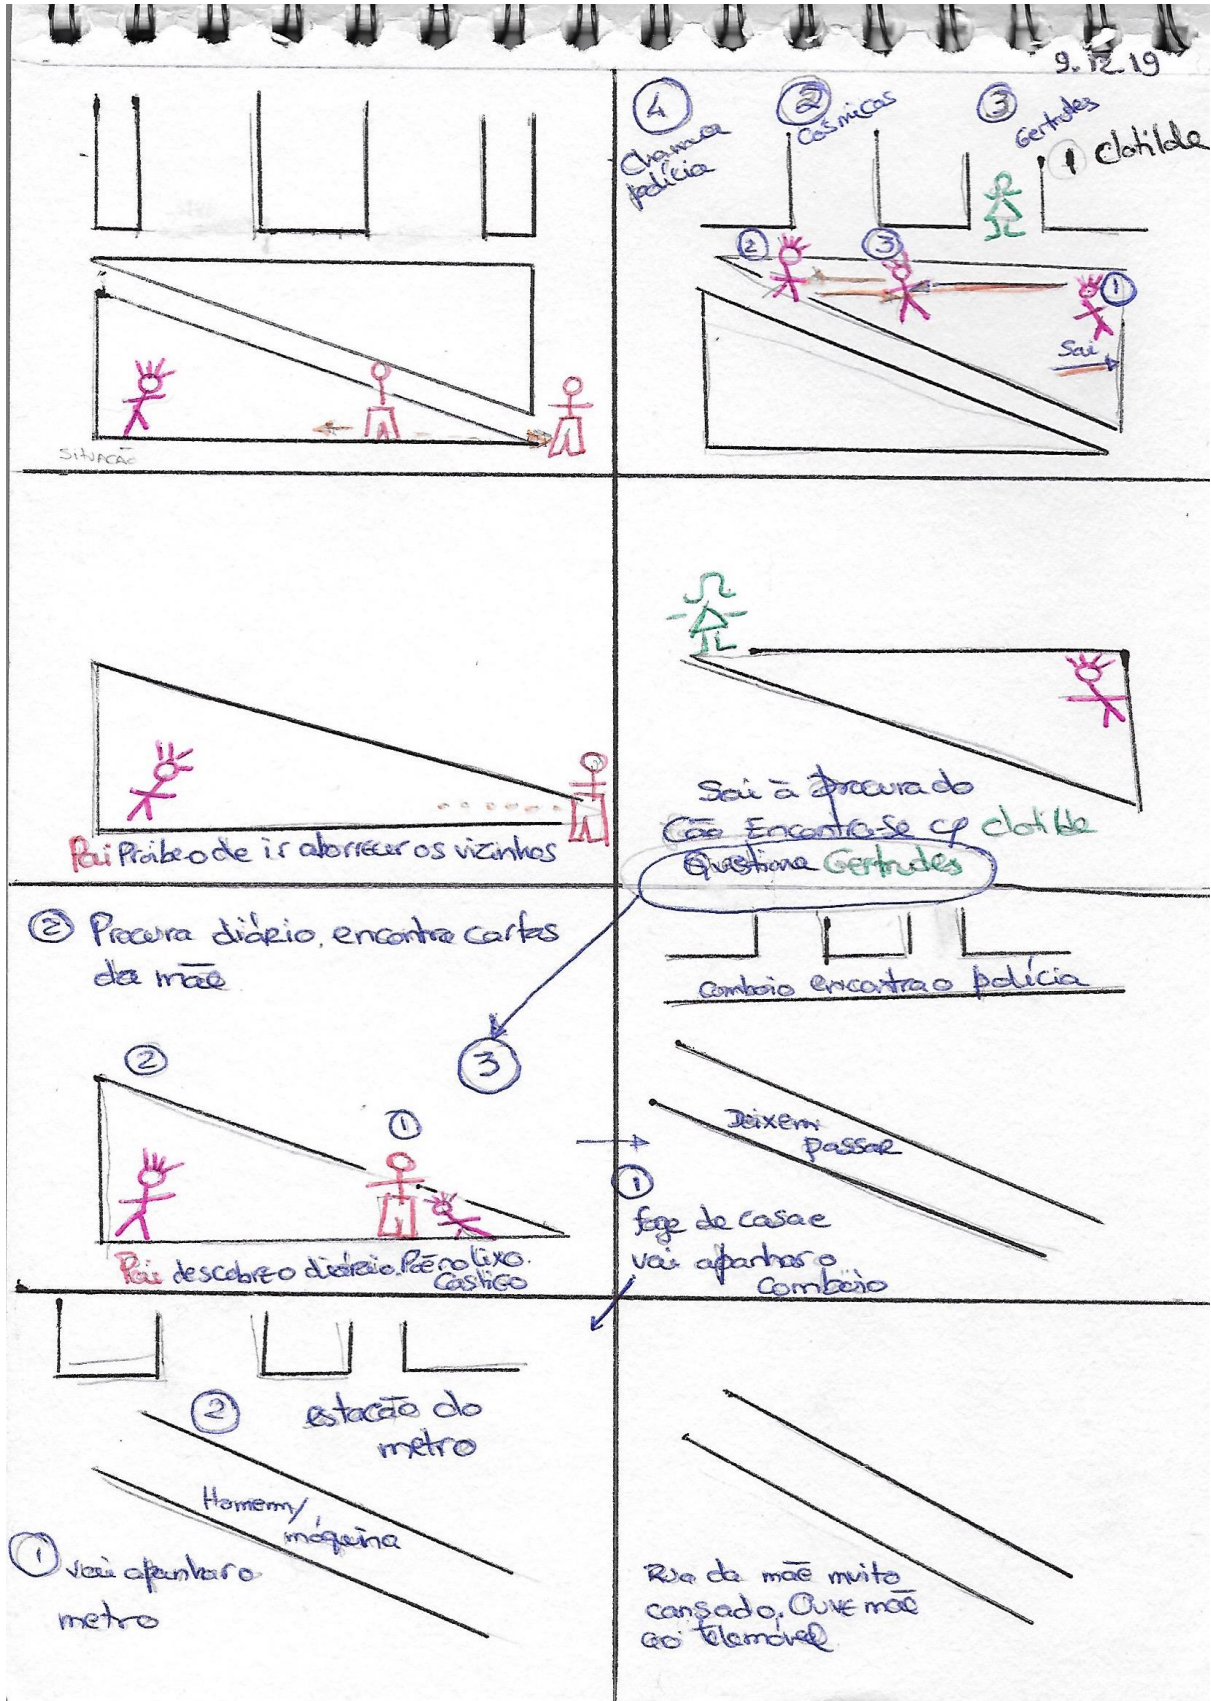 9.12.19
SITUAÇÃO
4
Chama
polícia
2
Cósmicas
3
Gertrudes
1 Clotilde
2
3
1
Sai
Pai Proibe-o de ir aborrecer os vizinhos
Sai à procura do
Cão Encontra-se c/ Clotilde
Questiona Gertrudes
2 Procura diário, encontra cartas
da mãe
3
2
1
Pai descobre o diário. Põe no lixo.
Castigo
Comboio encontra o polícia
Deixem
passar
1
foge de casa e
vai apanhar o
Comboio
2 estação do
metro
Homem/
máquina
1 vai apanhar o
metro
Rua da mãe muito
cansado. Ouve mãe
ao telemóvel